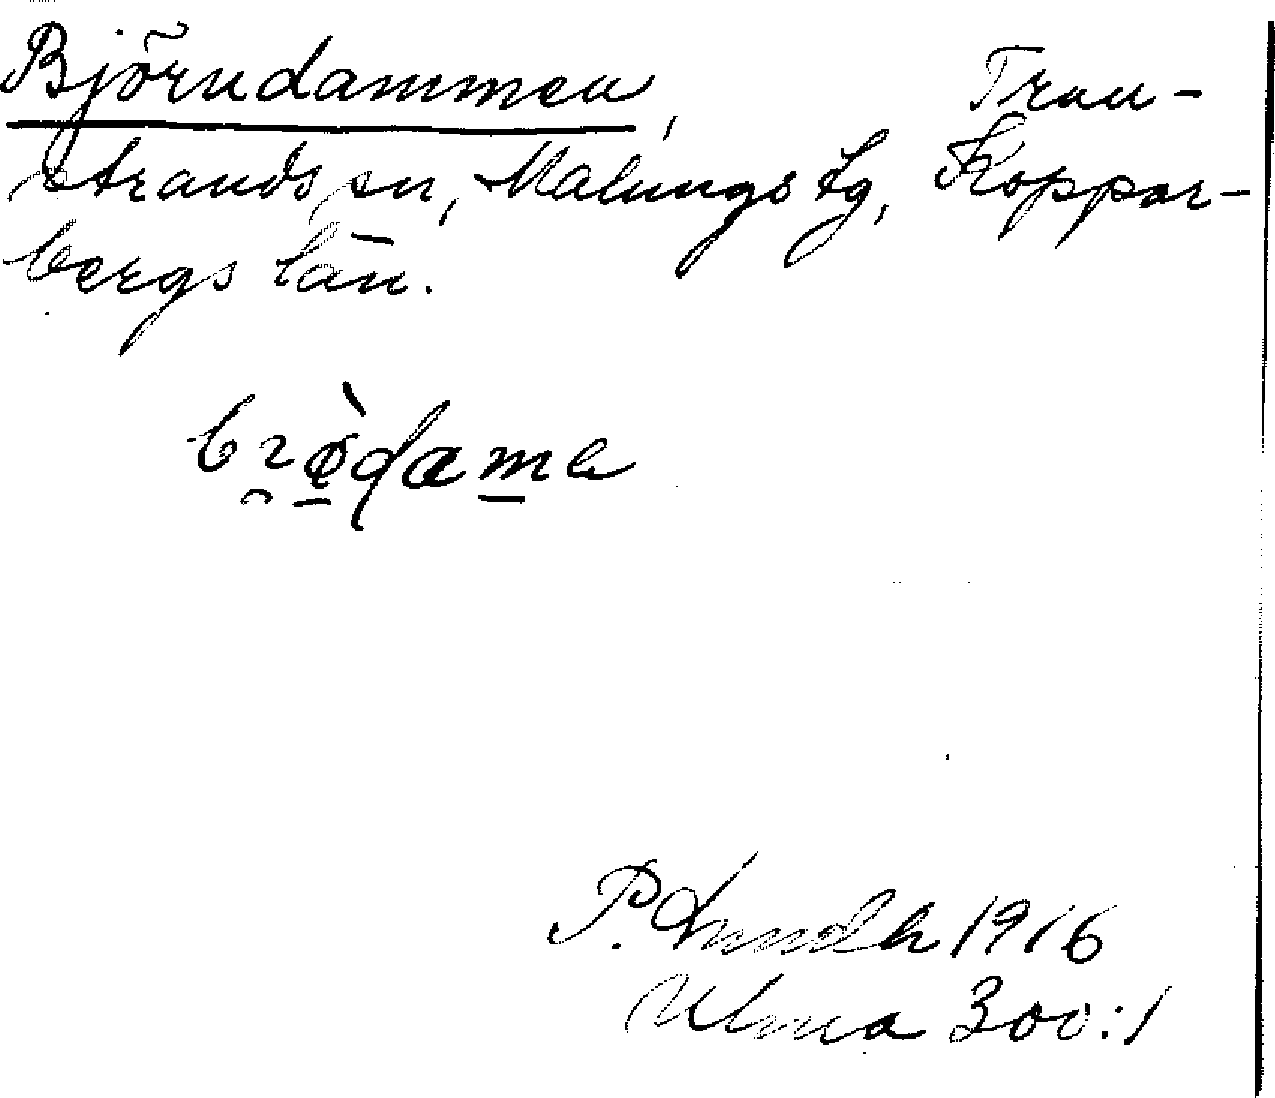 Björndammen, Tran-
strands sn, Malungs tg, Koppar-
bergs län.
P. Lundh 1916
Ulma 300:1